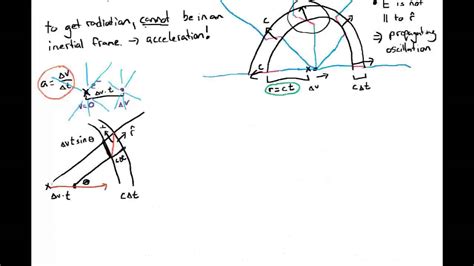 to get radiation, cannot be in an
inertial frame. → acceleration!
a = Δv/Δt
v=0
Δv·t
Δv
Δvt sinθ
r̂
cΔt
θ
Δv·t
cΔt
c
c
c
r=ct
Δv
cΔt
E is not
|| to r̂
⇒ propagating
oscillation